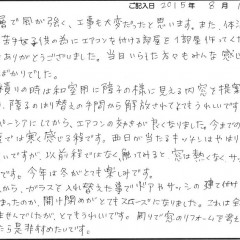 ご記入日 2015年 8月 1
層で風が強く、工事も大変だったと思います。また、体
苦手な子供の為にエアコンを付ける部屋を1部屋作ってく
ありがとうございました。当日いらした方々もみんな感じ
ばかりでした。
積りの時は和室用に障子の様に見える内窓を提案
、障子のはり替えの手間から解放されてとてもうれしいです
ペーシアにしてから、エアコンの効きが良くなりました。今までの
では寒く感じる程です。西日が当たるサッシはやはり
いですが、以前程ではなく、触ってみると窓は熱くなくサッ
です。今年は冬がとても楽しみです。
から、ガラスを入れ替えた事でドアやサッシの建て付け
まったのか、開け閉めがとてもスムーズになりました。これは全
ませんでしたが、とてもうれしいです。周りで窓のリフォームを考え
たら是非材めたいです。